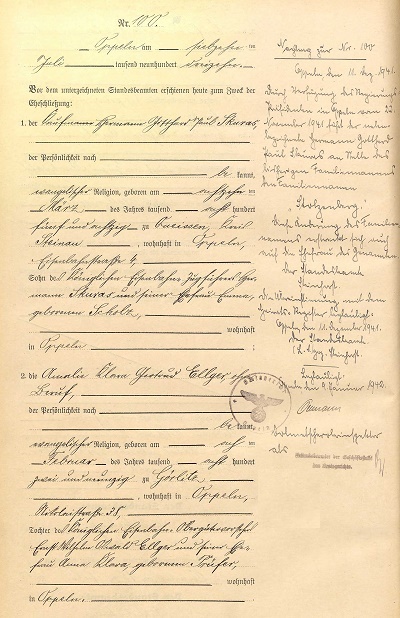 Nr. 100.
Oppeln am siebzehn ten
Juli tausend neunhundert dreizehn.
Vor dem unterzeichneten Standesbeamten erschienen heute zum Zwecke der
Eheschließung:
1. der Kaufmann Hermann Gotthard Paul Skuras,
der Persönlichkeit nach
be kannt,
evangelischer Religion, geboren am achtzehn ten
März des Jahres tausend acht hundert
fünf und achtzig zu
Steinau, wohnhaft in Oppeln,
Eisenbahnstraße 4,
Sohn des Königlichen Eisenbahn Zugführers Her-
mann Skuras und seiner Ehefrau Emma,
geborenen Scholz,
wohnhaft
in Oppeln;
2. die Amalie Klara Gertrud Ellger ohne
Beruf,
der Persönlichkeit nach
be kannt,
evangelischer Religion, geboren am ach ten
Februar des Jahres tausend acht hundert
zwei und neunzig zu Görlitz,
, wohnhaft in Oppeln,
Nikolaistraße 38,
Tochter des Königlichen Eisenbahn
Ernst Wilhelm Oswald Ellger und seiner Ehe-
frau Anna Klara, geborenen Prüfer,
wohnhaft
in Oppeln.
Nachtrag zur Nr. 100
Oppeln, den 11. Dez. 1941.
Durch Verfügung des Regierungs-
präsidenten in Oppeln vom
November 1941 führt der neben-
bezeichnete Hermann Gotthard
Paul Skuras an Stelle des
bisherigen Familiennamens
den Familiennamen
"Stolzenberg."
Diese Änderung des Familien-
namens erstreckt sich auch
auf die Ehefrau des Genannten
Der Standesbeamte
Die Übereinstimmung mit dem
Oppeln, den 11. Dezember 1941.
Der Standesbeamte
Beglaubigt
den 9. Januar 1942.
als